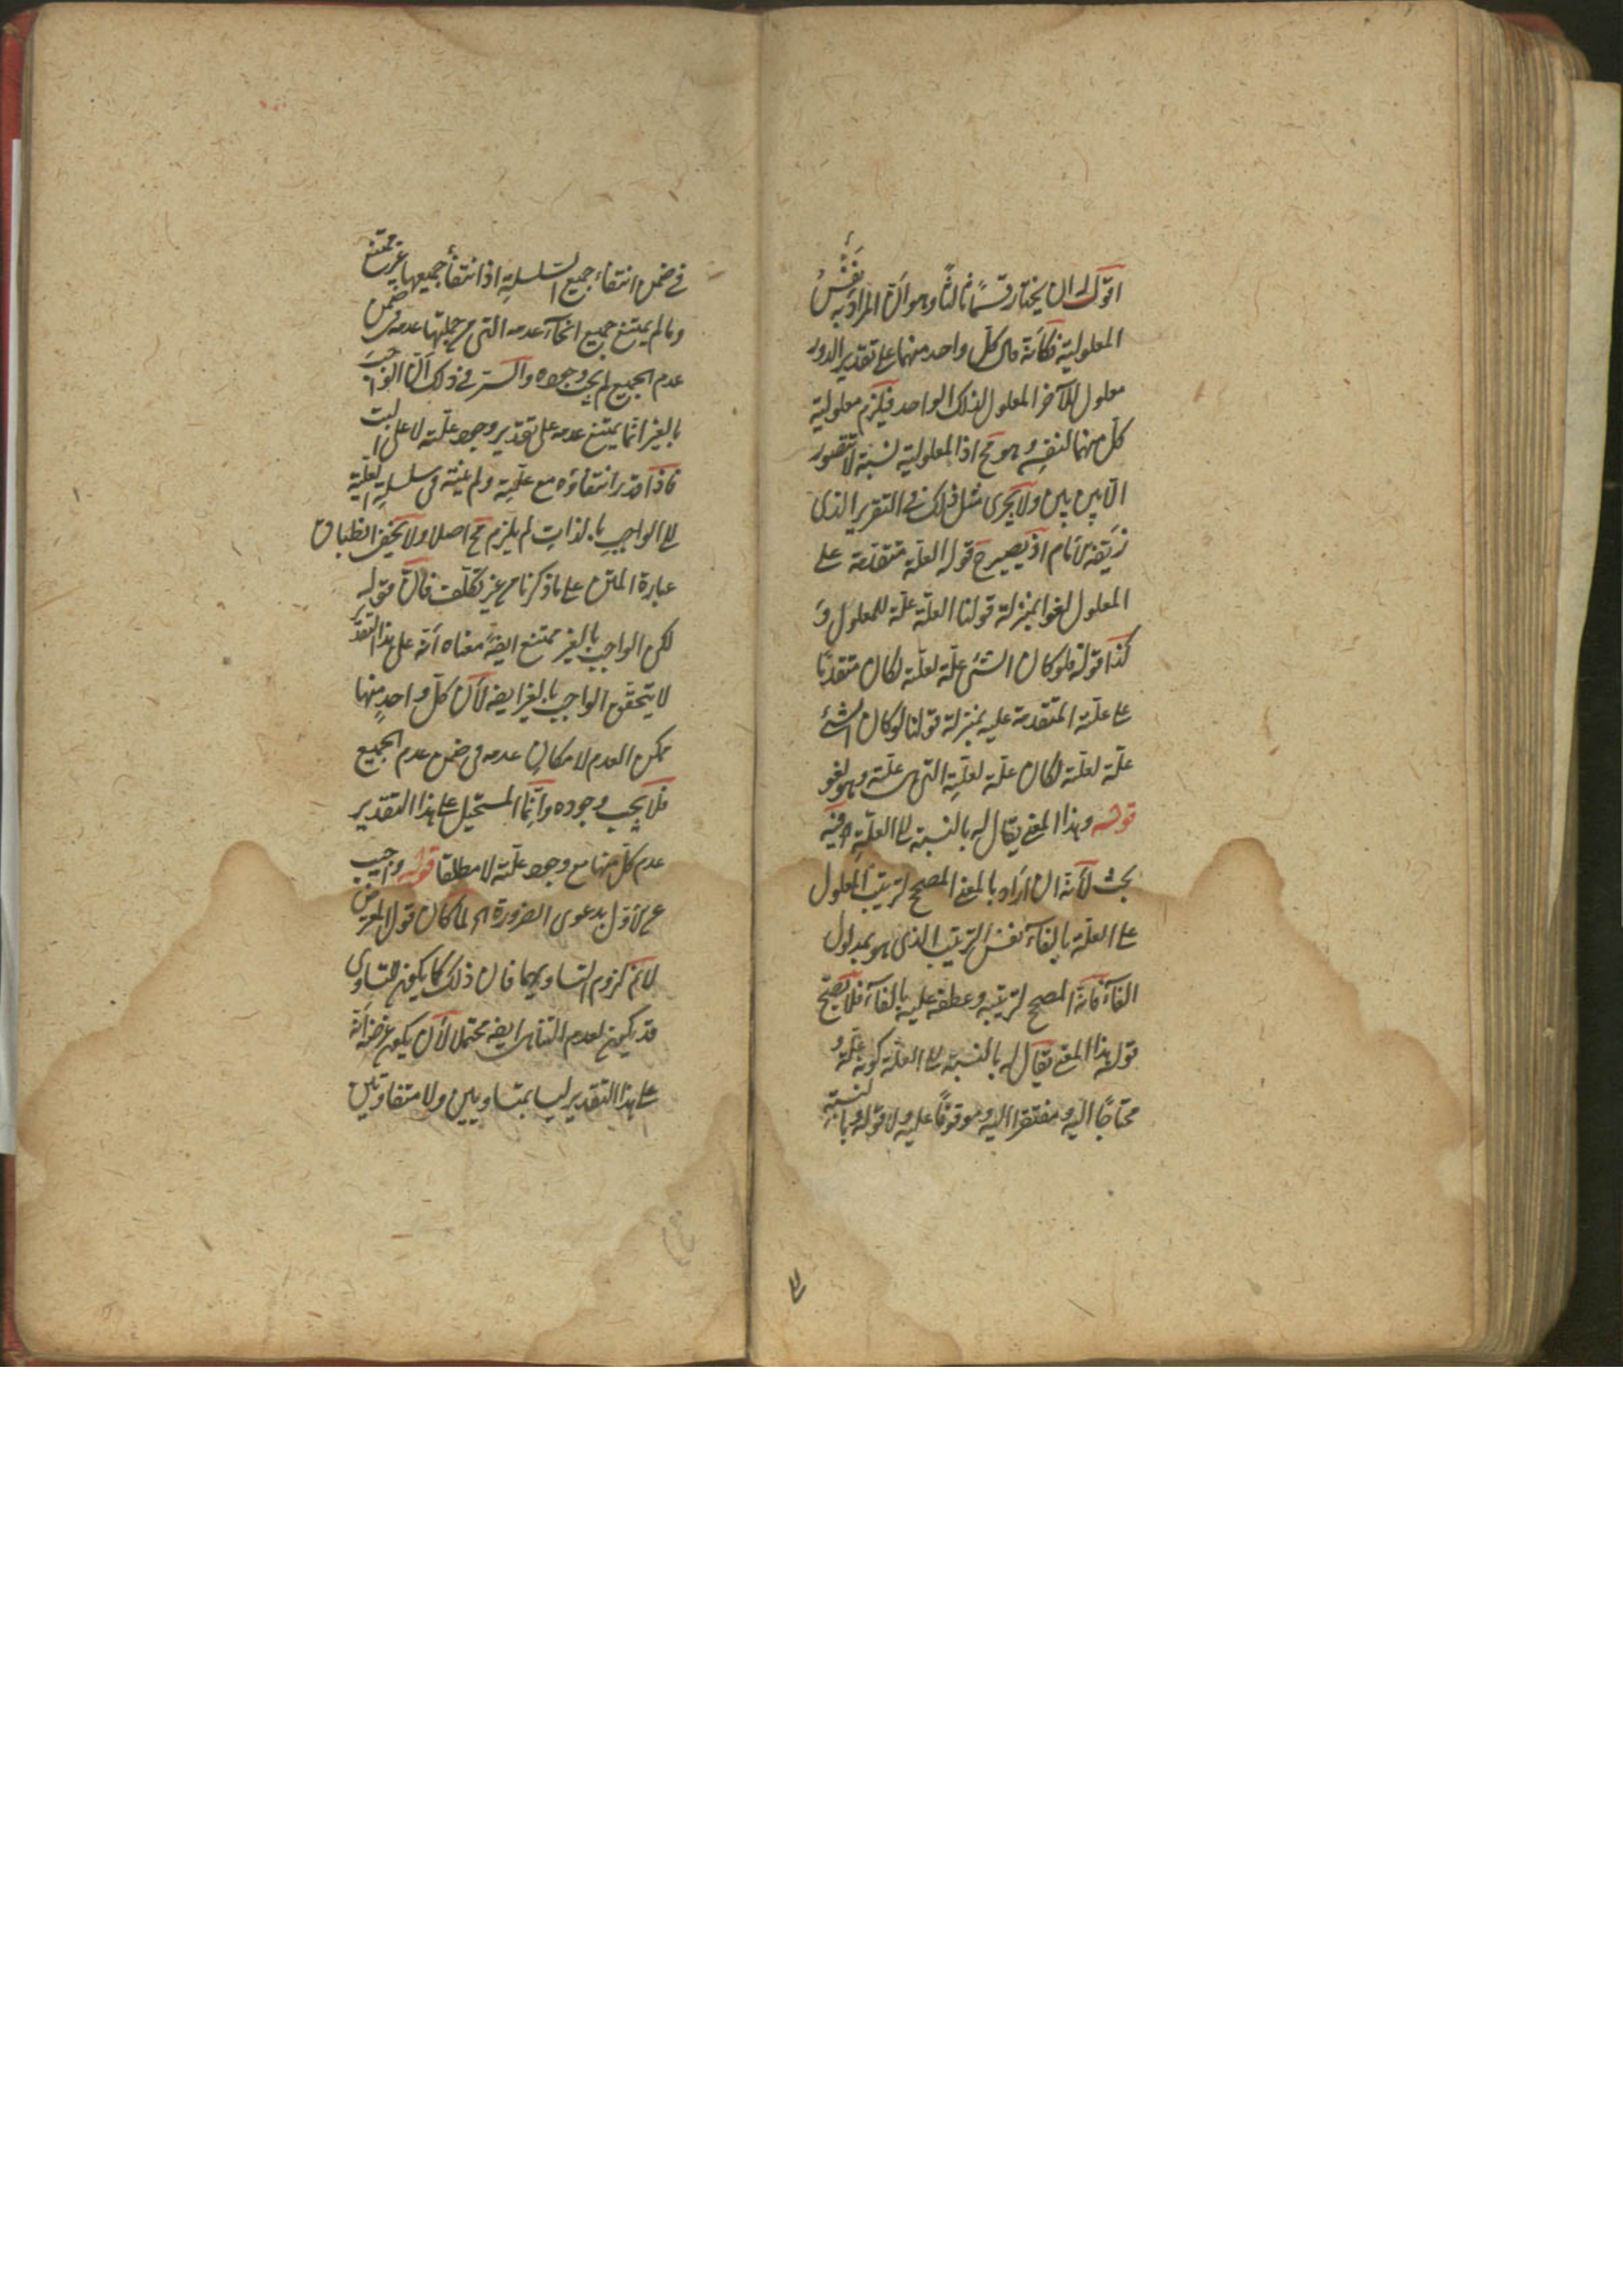 اقول له ان يختار قسمًا ثالثًا وهو انّ المراد به نفس
المعلولية فكأنه قال كلّ واحد منهما على تقدير الدور
معلول للآخر المعلول لذلك الواحد فيلزم معلولية
كلّ منهما لنفسه وهو مح اذ المعلولية نسبة لا تتصور
الّا بين بين ولا يجرى مثل ذلك فى التقرير الذى
زيّفه الامام اذ يصير ح قوله العلّة متقدّمة على
المعلول لغوا بمنزلة قولنا العلّة علّة للمعلول و
كذا قوله فلو كان الشئ علّة لعلّته لكان متقدّمًا
على علّته المتقدمة عليه بمنزلة قولنا لو كان الشئ
علّة لعلّته لكان علّة لعلّته التى هى علّته وهو لغو
قوله وهذا المعنى يقال له بالنسبة الى العلّة اه فيه
بحث لأنّه ان اراد بالمعنى المصحح لترتيب المعلول
على العلّة بالفآء نفس الترتيب الذى هو مدلول
الفآء فانّه المصحح لترتيبه وعطفه عليه بالفآء فلا يصحّ
قوله هذا المعنى يقال له بالنسبة الى العلّة كونه علّة و
محتاجًا اليه ومفتقرا اليه وموقوفًا عليه ولا قوله وبالنسبة
الى
فى ضمن انتفاء جميع السّلسلة اذ انتفاء جميعها غير ممتنع
وما لم يمتنع جميع انحآء عدمه التى من جملتها عدمه فى ضمن
عدم الجميع لم يجب وجوده والسّر فى ذلك انّ الواجب
بالغير انّما يمتنع عدمه على تقدير وجود علّته لا على البت
فاذا قدر انتفاؤه مع علّته ولم ينته فى سلسلة العلية
الى الواجب بالذات لم يلزم مح اصلا ولا يخفى انطباق
عبارة المتن على ما ذكرنا من غير تكلّف فانّ قوله
لكن الواجب بالغير ممتنع ايضًا معناه أنّه على هذا التقدير
لا يتحقّق الواجب بالغير ايضه لأن كلّ واحدٍ منها
ممكن العدم لامكان عدمه فى ضمن عدم الجميع
فلا يجب وجوده وانّما المستحيل على هذا التقدير
عدم كلّ منها مع وجود علّته لا مطلقا قوله واجيب
عن الأوّل بدعوى الضرورة اه لما كان قول المعترض
لا نم لزوم التساويهما فان ذلك كما يكون للتساوى
قد يكون لعدم التناهى ايضه محتملا لأن يكون غرضه أنّه
على هذا التقدير ليسا بمتساويين ولا متفاوتين